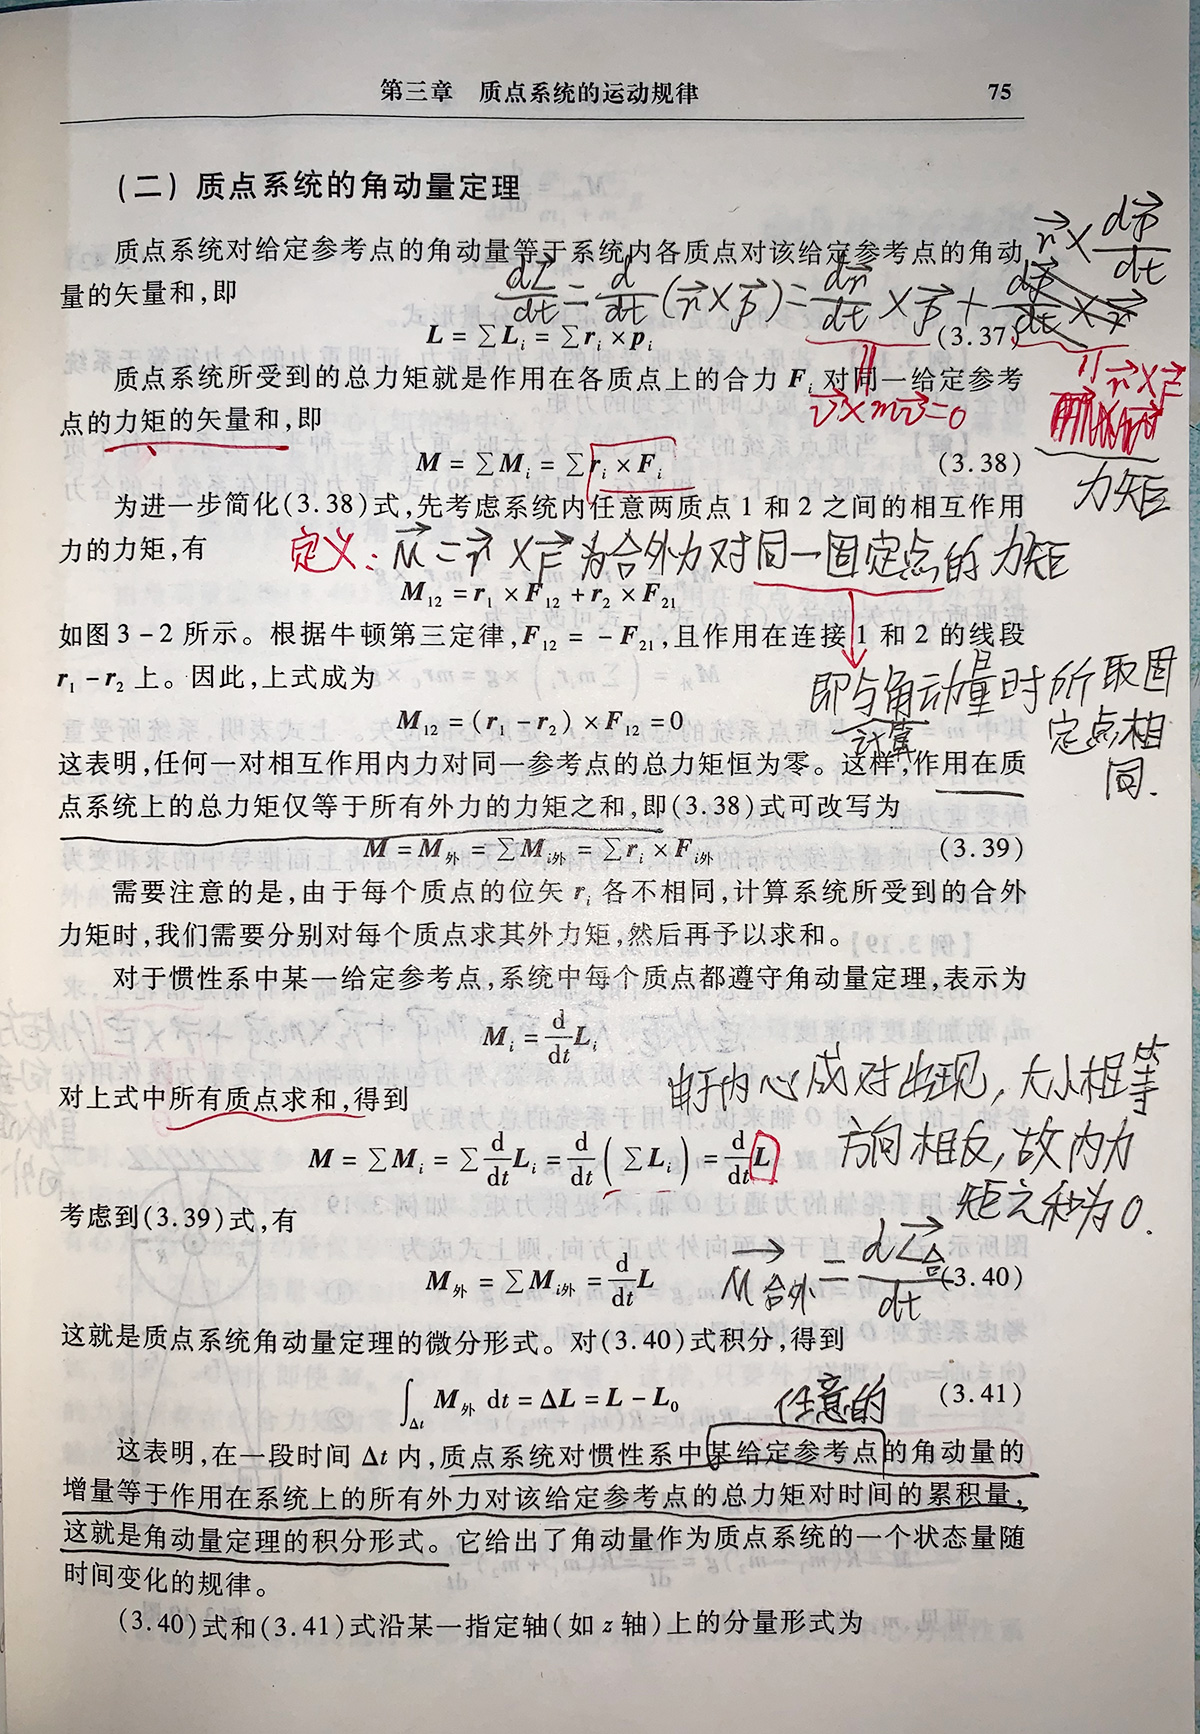 第三章 质点系统的运动规律 75
(二) 质点系统的角动量定理
质点系统对给定参考点的角动量等于系统内各质点对该给定参考点的角动
量的矢量和,即
dL/dt = d/dt (r×p) = dr/dt × p + dp/dt × r
r × dp/dt
L = ∑Lᵢ = ∑rᵢ×pᵢ (3.37)
v×mv=0
r×F
力矩
质点系统所受到的总力矩就是作用在各质点上的合力 Fᵢ 对同一给定参考
点的力矩的矢量和,即
M = ∑Mᵢ = ∑rᵢ×Fᵢ (3.38)
为进一步简化(3.38)式,先考虑系统内任意两质点 1 和 2 之间的相互作用
力的力矩,有
定义: M = r × F 为合外力对同一固定点的力矩
M₁₂ = r₁×F₁₂ + r₂×F₂₁
如图 3-2 所示。根据牛顿第三定律,F₁₂ = -F₂₁,且作用在连接 1 和 2 的线段
r₁-r₂ 上。因此,上式成为
即与角动量时所取固
计算
定点相
同.
M₁₂ = (r₁-r₂)×F₁₂ = 0
这表明,任何一对相互作用内力对同一参考点的总力矩恒为零。这样,作用在质
点系统上的总力矩仅等于所有外力的力矩之和,即(3.38)式可改写为
M = M外 = ∑Mᵢ外 = ∑rᵢ×Fᵢ外 (3.39)
需要注意的是,由于每个质点的位矢 rᵢ 各不相同,计算系统所受到的合外
力矩时,我们需要分别对每个质点求其外力矩,然后再予以求和。
对于惯性系中某一给定参考点,系统中每个质点都遵守角动量定理,表示为
Mᵢ = d/dt Lᵢ
对上式中所有质点求和,得到
由于内心成对出现,大小相等
方向相反,故内力
矩之和为0.
M = ∑Mᵢ = ∑ d/dt Lᵢ = d/dt (∑Lᵢ) = d/dt L
考虑到(3.39)式,有
M外 = ∑Mᵢ外 = d/dt L (3.40)
M合外 = dL合/dt
这就是质点系统角动量定理的微分形式。对(3.40)式积分,得到
∫Δt M外 dt = ΔL = L - L₀ (3.41)
任意的
这表明,在一段时间 Δt 内,质点系统对惯性系中某给定参考点的角动量的
增量等于作用在系统上的所有外力对该给定参考点的总力矩对时间的累积量,
这就是角动量定理的积分形式。它给出了角动量作为质点系统的一个状态量随
时间变化的规律。
(3.40)式和(3.41)式沿某一指定轴(如 z 轴)上的分量形式为